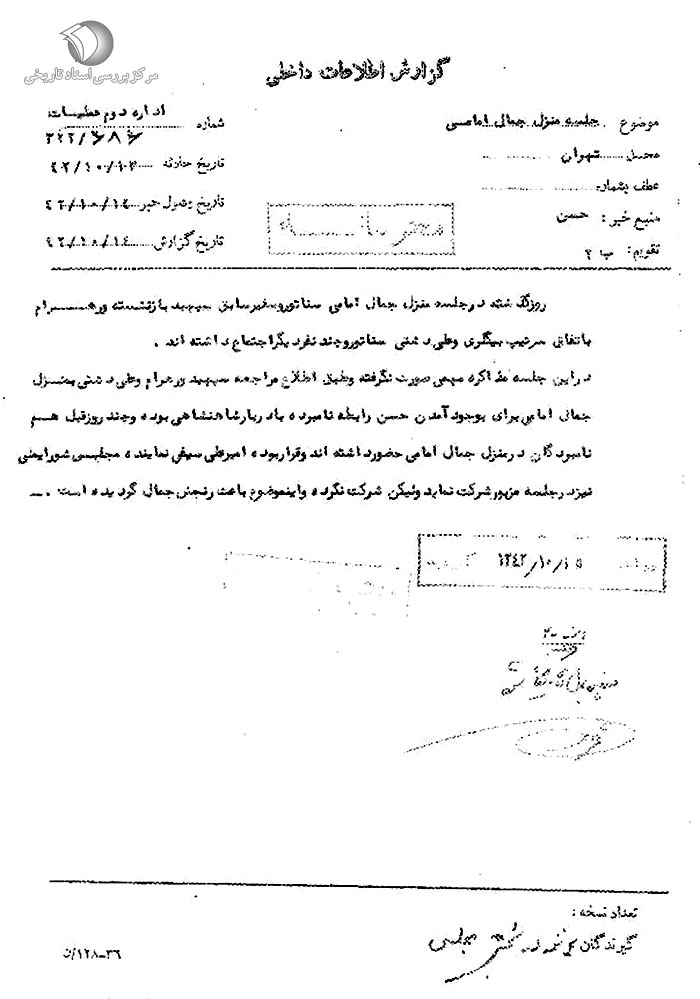 مرکز بررسی اسناد تاریخی
گزارش اطلاعات داخلی
اداره دوم عملیات
موضوع جلسه منزل جمال امامی
شماره ۳۲۲/۶۸۶
محل تهران
تاریخ حادثه ۴۲/۱۰/۱۳
عطف بشماره
تاریخ وصول خبر ۴۲/۱۰/۱۴
منبع خبر : حسن
تاریخ گزارش ۴۲/۱۰/۱٤
تقویم : ب ۲
محرمانه
روز گذشته در جلسه منزل جمال امامی سناتور و سفیر سابق سپهبد بازنشسته ورهرام
باتفاق سرتیپ بیگلری وعلی دشتی سناتور و چند نفر دیگر اجتماع داشته اند .
در این جلسه مذاکره مهمی صورت نگرفته وطبق اطلاع مراجعه سپهبد ورهرام وعلی دشتی بمنزل
جمال امامی برای بوجود آمدن حسن رابطه نامبرده با دربار شاهنشاهی بوده و چند روز قبل هم
نامبردگان در منزل جمال امامی حضور داشته اند و قرار بوده امیرعلی سیفی نماینده مجلس شورایملی
نیز در جلسه مزبور شرکت نماید ولیکن شرکت نکرده و اینموضوع باعث رنجش جمال گردیده است .
۱۳۴۲/۱۰/۱۵
تعداد نسخه :
گیرندگان
۳۶-۱۲۸/ن